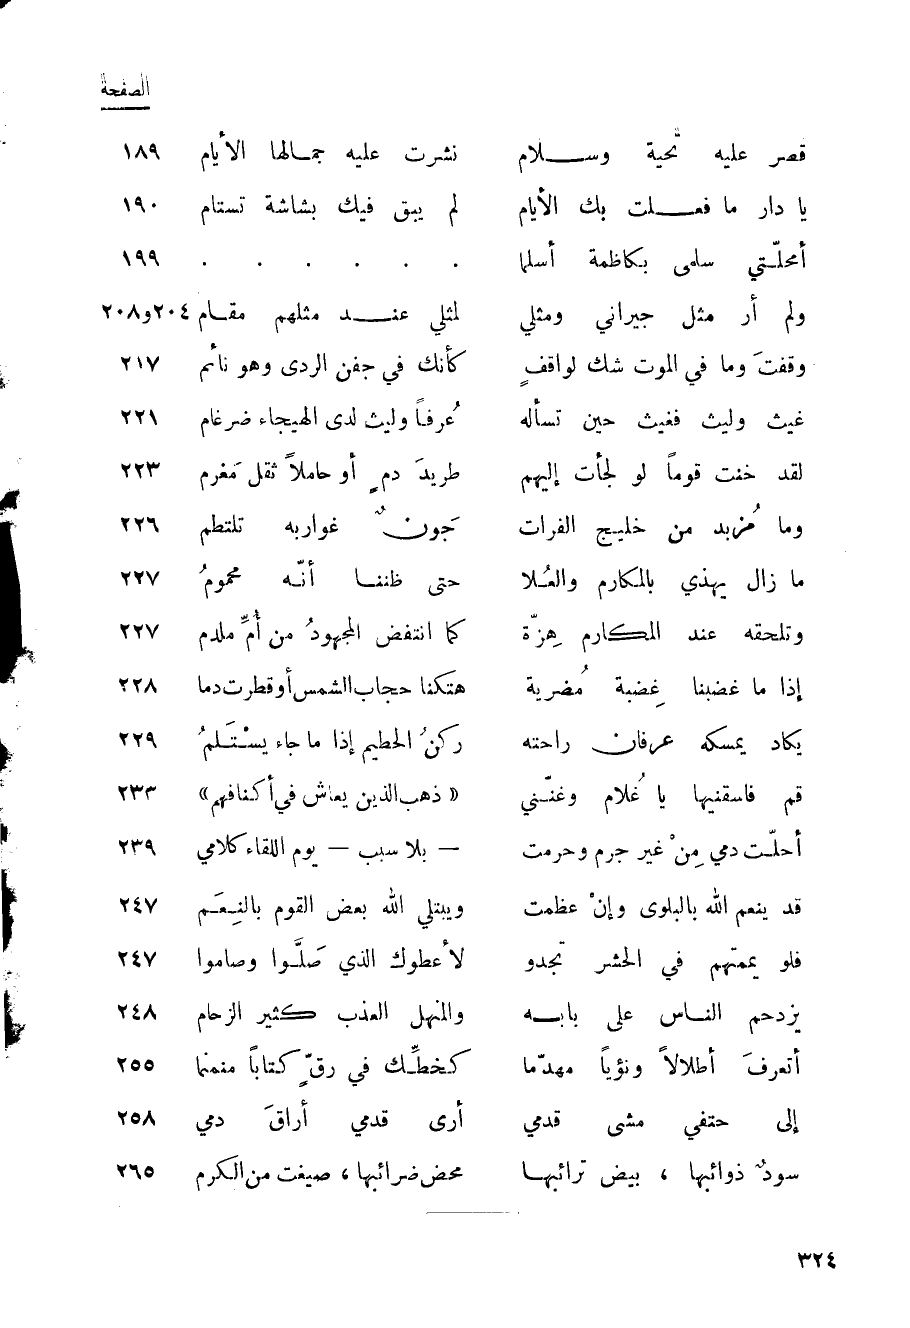 الصفحة
قصر عليه تحية وســـلام نشرت عليه جمالها الأيام ١٨٩
يا دار ما فعـــلت بك الأيام لم يبق فيك بشاشة تستام ١٩٠
أمحلّتي سلمى بكاظمة أسلما . . . . . . ١٩٩
ولم أر مثل جيراني ومثلي لمثلي عنــد مثلهم مقـام ٢٠٤و٢٠٨
وقفتَ وما في الموت شك لواقفٍ كأنك في جفن الردى وهو نائم ٢١٧
غيث وليث فغيث حين تسأله عُرفاً وليث لدى الهيجاء ضرغام ٢٢١
لقد خنت قوماً لو لجأت إليهم طريدَ دمٍ أو حاملاً ثقل مَغرم ٢٢٣
وما مُزبد من خليج الفرات جَونٌ غواربه تلتطم ٢٢٦
ما زال يهذي بالمكارم والعُلا حتى ظننـا أنّـه محمومُ ٢٢٧
وتلحقه عند المكارم هِزّة كما انتفض المجهودُ من أُمِّ ملدم ٢٢٧
إذا ما غضبنا غِضبة مُضرية هتكنا حجاب الشمس أو قطرت دما ٢٢٨
يكاد يمسكه عرفان راحته ركنُ الحطيم إذا ما جاء يسْتَـلمُ ٢٢٩
قم فاسقنيها يا غُلام وغنّـني « ذهب الذين يعاش في أكنافهم» ٢٣٣
أحلّـت دمي مِنْ غير جرم وحرمت — بلا سبب — يوم اللقاء كلامي ٢٣٩
قد ينعم الله بالبلوى وإنْ عظمت ويبتلي الله بعض القوم بالنِـعَـم ٢٤٧
فلو يممتهم في الحشر تجدو لأعطوك الذي صَلَّوا وصاموا ٢٤٧
يزدحم النـاس على بابـه والمنهل العذب كثير الزحام ٢٤٨
أتعرفَ أطلالاً ونؤياً مهدّما كخطِّـك في رقٍّ كتاباً منمنما ٢٥٥
إلى حتفي مشى قدمي أرى قدمي أراقَ دمي ٢٥٨
سودٌ ذوائبها ، بيض ترائبهـا محض ضرائبها ، صيغت من الكرم ٢٦٥
٣٢٤